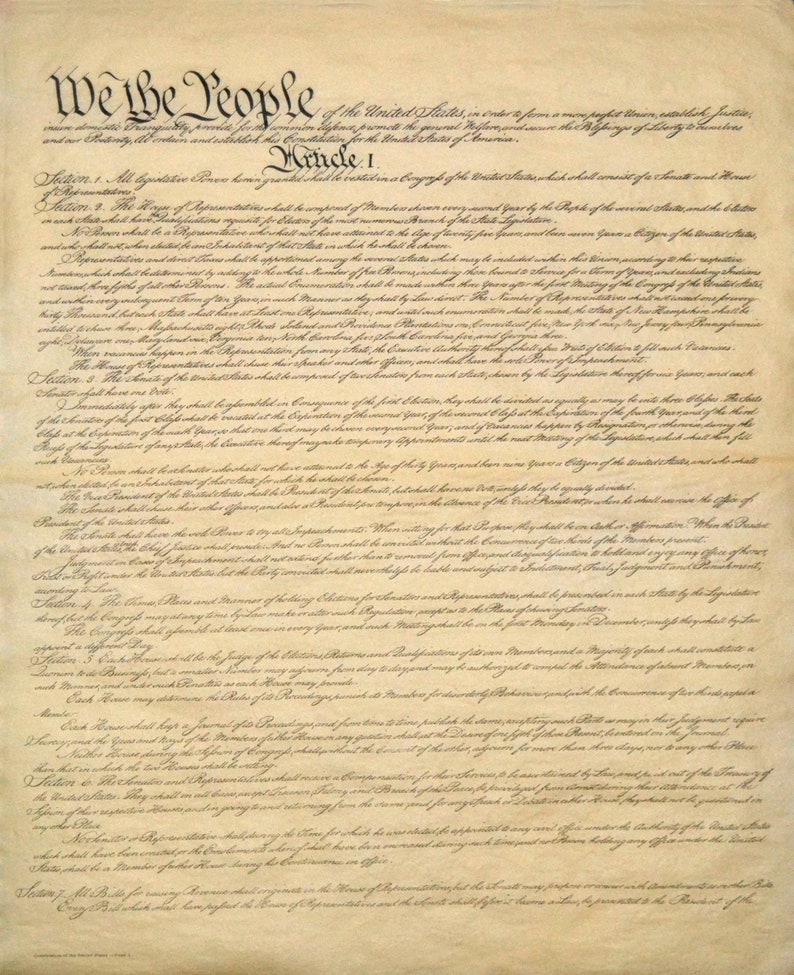 We the People of the United States, in Order to form a more perfect Union, establish Justice,
insure domestic Tranquility, provide for the common defence, promote the general Welfare, and secure the Blessings of Liberty to ourselves
and our Posterity, do ordain and establish this Constitution for the United States of America.
Article. I.
Section. 1. All legislative Powers herein granted shall be vested in a Congress of the United States, which shall consist of a Senate and House
of Representatives.
Section. 2. The House of Representatives shall be composed of Members chosen every second Year by the People of the several States, and the Electors
in each State shall have Qualifications requisite for Electors of the most numerous Branch of the State Legislature.
No Person shall be a Representative who shall not have attained to the Age of twenty five Years, and been seven Years a Citizen of the United States,
and who shall not, when elected, be an Inhabitant of that State in which he shall be chosen.
Representatives and direct Taxes shall be apportioned among the several States which may be included within this Union, according to their respective
Numbers, which shall be determined by adding to the whole Number of free Persons, including those bound to Service for a Term of Years, and excluding Indians
not taxed, three fifths of all other Persons. The actual Enumeration shall be made within three Years after the first Meeting of the Congress of the United States,
and within every subsequent Term of ten Years, in such Manner as they shall by Law direct. The Number of Representatives shall not exceed one for every
thirty Thousand, but each State shall have at Least one Representative; and until such enumeration shall be made, the State of New Hampshire shall be
entitled to chuse three, Massachusetts eight, Rhode Island and Providence Plantations one, Connecticut five, New York six, New Jersey four, Pennsylvania
eight, Delaware one, Maryland six, Virginia ten, North Carolina five, South Carolina five, and Georgia three.
When vacancies happen in the Representation from any State, the Executive Authority thereof shall issue Writs of Election to fill such Vacancies.
The House of Representatives shall chuse their Speaker and other Officers; and shall have the sole Power of Impeachment.
Section. 3. The Senate of the United States shall be composed of two Senators from each State, chosen by the Legislature thereof, for six Years; and each
Senator shall have one Vote.
Immediately after they shall be assembled in Consequence of the first Election, they shall be divided as equally as may be into three Classes. The Seats
of the Senators of the first Class shall be vacated at the Expiration of the second Year, of the second Class at the Expiration of the fourth Year, and of the third
Class at the Expiration of the sixth Year, so that one third may be chosen every second Year; and if Vacancies happen by Resignation, or otherwise, during the
Recess of the Legislature of any State, the Executive thereof may make temporary Appointments until the next Meeting of the Legislature, which shall then fill
such Vacancies.
No Person shall be a Senator who shall not have attained to the Age of thirty Years, and been nine Years a Citizen of the United States, and who shall
not, when elected, be an Inhabitant of that State for which he shall be chosen.
The Vice President of the United States shall be President of the Senate, but shall have no Vote, unless they be equally divided.
The Senate shall chuse their other Officers, and also a President pro tempore, in the Absence of the Vice President, or when he shall exercise the Office of
President of the United States.
The Senate shall have the sole Power to try all Impeachments. When sitting for that Purpose, they shall be on Oath or Affirmation. When the President
of the United States is tried, the Chief Justice shall preside: And no Person shall be convicted without the Concurrence of two thirds of the Members present.
Judgment in Cases of Impeachment shall not extend further than to removal from Office, and disqualification to hold and enjoy any Office of honor,
Trust or Profit under the United States: but the Party convicted shall nevertheless be liable and subject to Indictment, Trial, Judgment and Punishment,
according to Law.
Section. 4. The Times, Places and Manner of holding Elections for Senators and Representatives, shall be prescribed in each State by the Legislature
thereof; but the Congress may at any time by Law make or alter such Regulations, except as to the Places of chusing Senators.
The Congress shall assemble at least once in every Year, and such Meeting shall be on the first Monday in December, unless they shall by Law
appoint a different Day.
Section. 5. Each House shall be the Judge of the Elections, Returns and Qualifications of its own Members, and a Majority of each shall constitute a
Quorum to do Business; but a smaller Number may adjourn from day to day, and may be authorized to compel the Attendance of absent Members, in
such Manner, and under such Penalties as each House may provide.
Each House may determine the Rules of its Proceedings, punish its Members for disorderly Behaviour, and, with the Concurrence of two thirds, expel a
Member.
Each House shall keep a Journal of its Proceedings, and from time to time publish the same, excepting such Parts as may in their Judgment require
Secrecy; and the Yeas and Nays of the Members of either House on any question shall, at the Desire of one fifth of those Present, be entered on the Journal.
Neither House, during the Session of Congress, shall, without the Consent of the other, adjourn for more than three days, nor to any other Place
than that in which the two Houses shall be sitting.
Section. 6. The Senators and Representatives shall receive a Compensation for their Services, to be ascertained by Law, and paid out of the Treasury of
the United States. They shall in all Cases, except Treason, Felony and Breach of the Peace, be privileged from Arrest during their Attendance at the
Session of their respective Houses, and in going to and returning from the same; and for any Speech or Debate in either House, they shall not be questioned in
any other Place.
No Senator or Representative shall, during the Time for which he was elected, be appointed to any civil Office under the Authority of the United States
which shall have been created, or the Emoluments whereof shall have been encreased during such time; and no Person holding any Office under the United
States, shall be a Member of either House during his Continuance in Office.
Section. 7. All Bills for raising Revenue shall originate in the House of Representatives; but the Senate may propose or concur with Amendments as on other Bills.
Every Bill which shall have passed the House of Representatives and the Senate, shall, before it become a Law, be presented to the President of the
Constitution of the United States — Page 1.